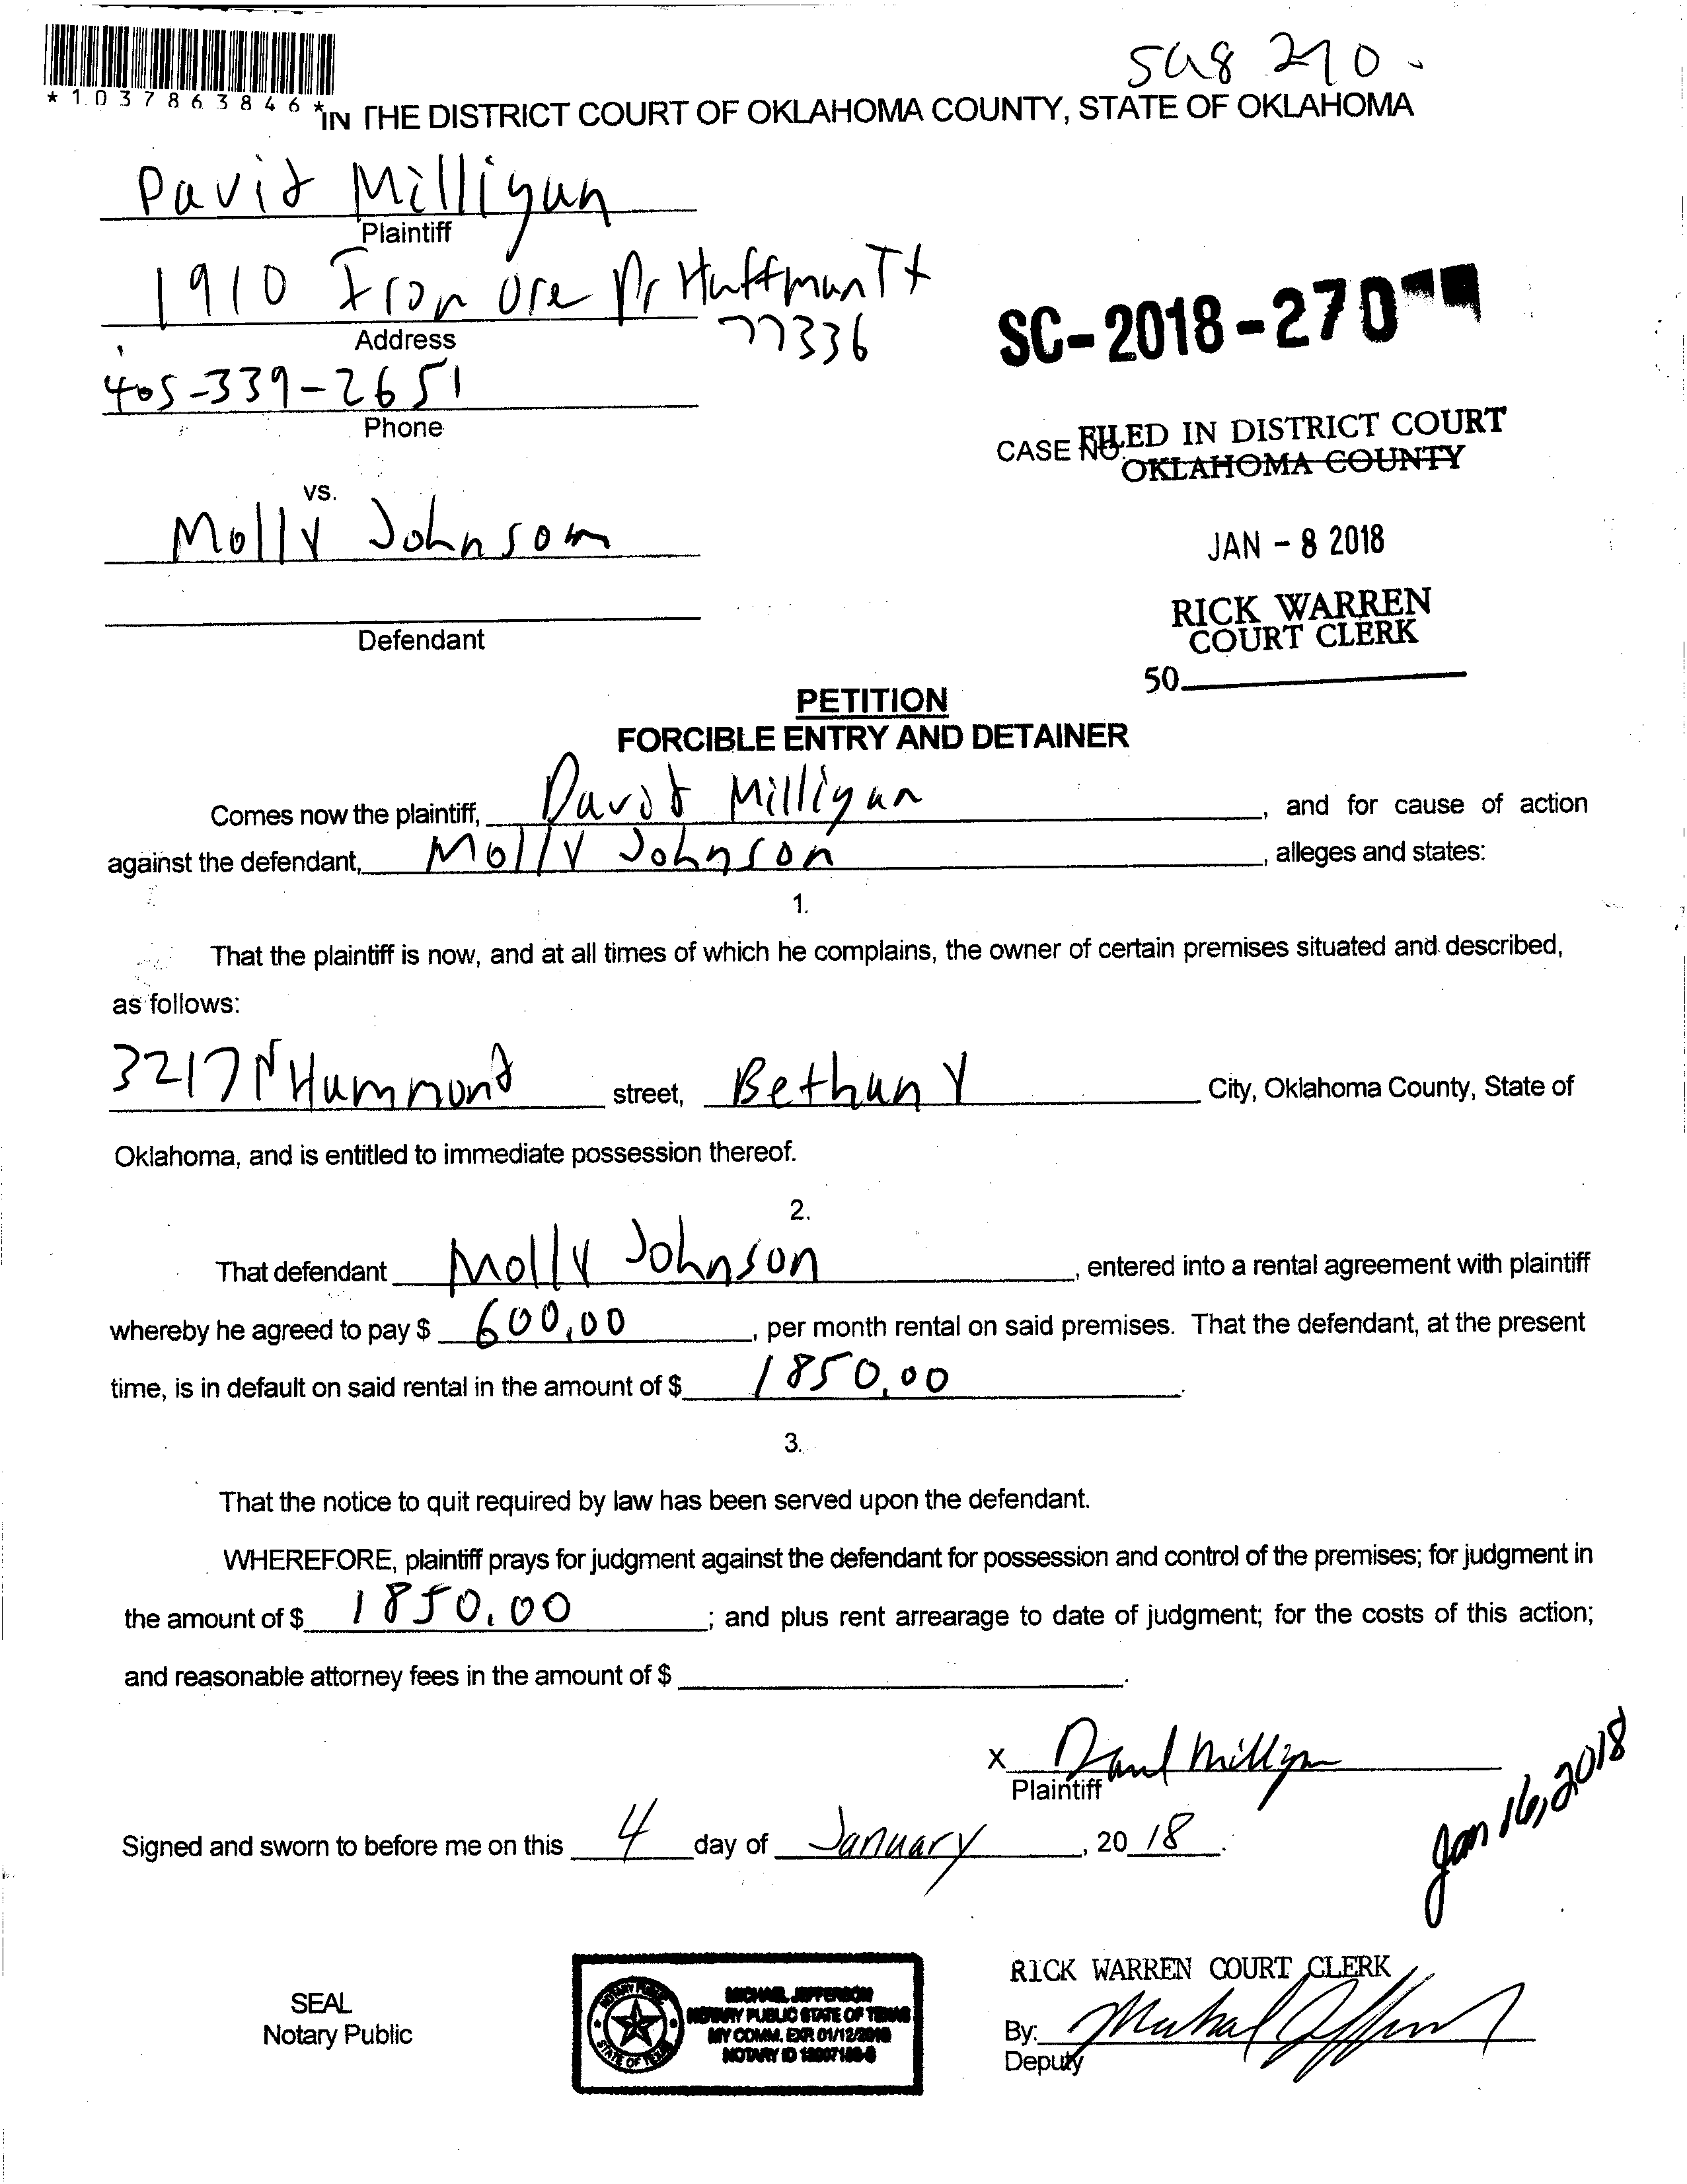 *1037863846*
IN THE DISTRICT COURT OF OKLAHOMA COUNTY, STATE OF OKLAHOMA
David Milligan
Plaintiff
1910 Iron Ore Dr Huffman Tx
77336
Address
SC-2018-270
405-339-2651
Phone
CASE NO.
FILED IN DISTRICT COURT
OKLAHOMA COUNTY
vs.
Molly Johnson
JAN - 8 2018
RICK WARREN
COURT CLERK
Defendant
50
PETITION
FORCIBLE ENTRY AND DETAINER
Comes now the plaintiff, David Milligan, and for cause of action
against the defendant, Molly Johnson, alleges and states:
1.
That the plaintiff is now, and at all times of which he complains, the owner of certain premises situated and described,
as follows:
3217 N Hammond street, Bethany City, Oklahoma County, State of
Oklahoma, and is entitled to immediate possession thereof.
2.
That defendant Molly Johnson, entered into a rental agreement with plaintiff
whereby he agreed to pay $ 600.00, per month rental on said premises. That the defendant, at the present
time, is in default on said rental in the amount of $ 1850.00.
3.
That the notice to quit required by law has been served upon the defendant.
WHEREFORE, plaintiff prays for judgment against the defendant for possession and control of the premises; for judgment in
the amount of $ 1850.00; and plus rent arrearage to date of judgment; for the costs of this action;
and reasonable attorney fees in the amount of $ .
X David Milligan
Plaintiff
Jan 16, 2018
Signed and sworn to before me on this 4 day of January, 2018.
RICK WARREN COURT CLERK
SEAL
Notary Public
NOTARY PUBLIC
STATE OF TEXAS
MICHAEL JEFFERSON
NOTARY PUBLIC STATE OF TEXAS
MY COMM. EXP. 01/12/
NOTARY ID
By: Michael Jefferson
Deputy